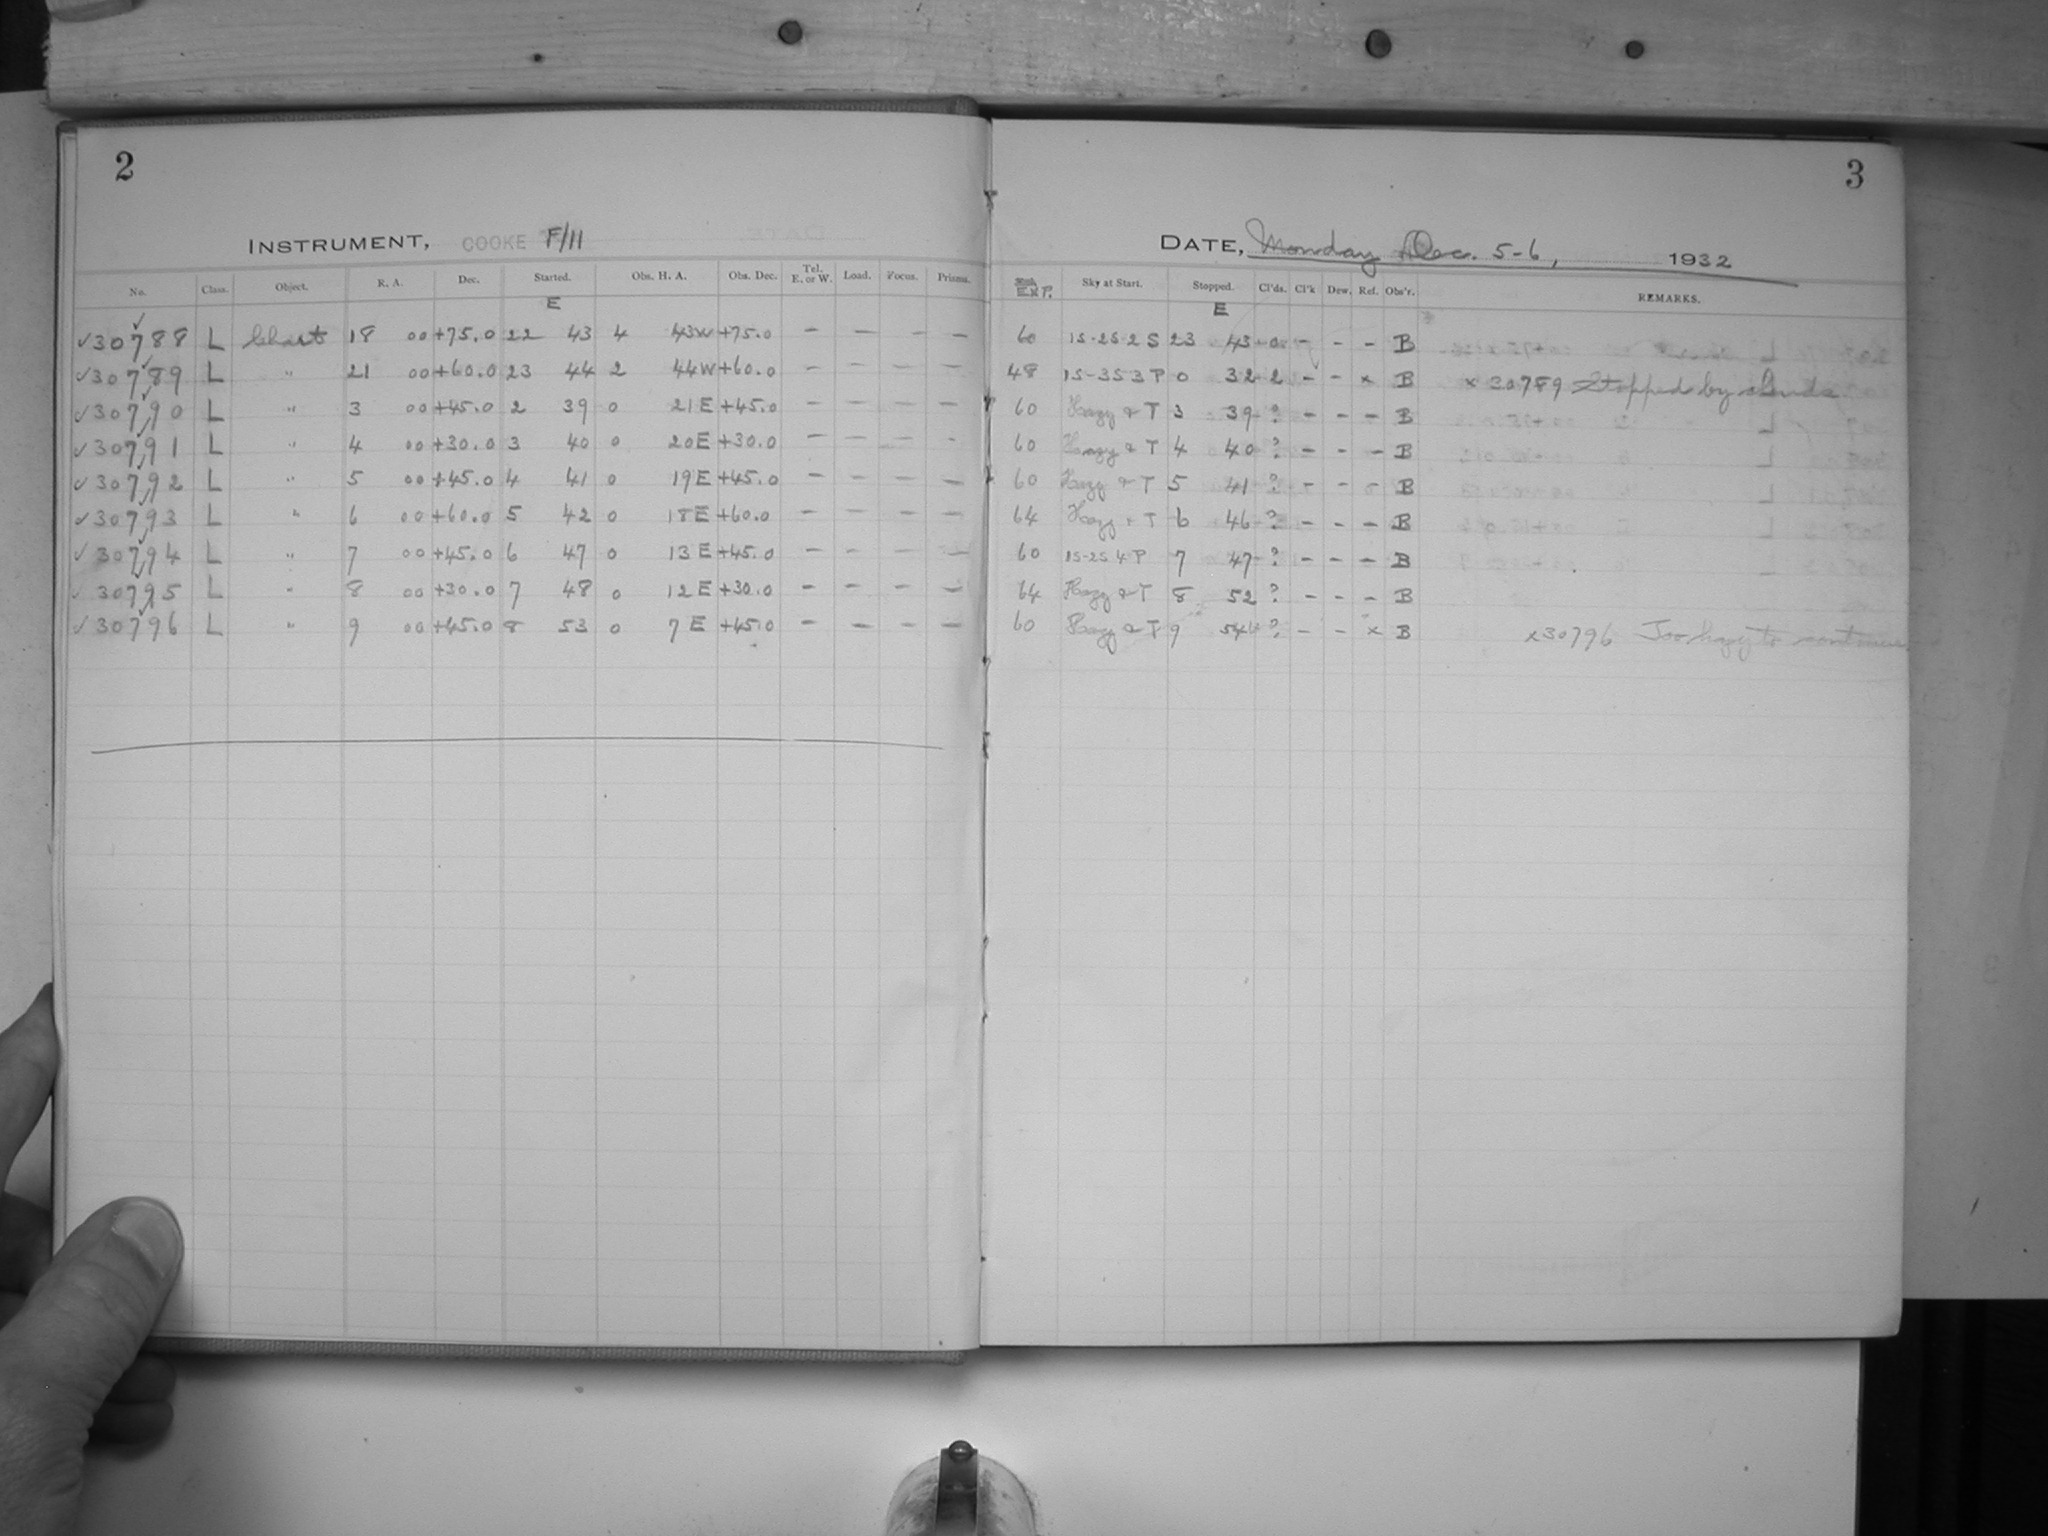 2
INSTRUMENT, COOKE F/11
No. Class. Object. R. A. Dec. Started. Obs. H. A. Obs. Dec. Tel. E. or W. Load. Focus. Prisms.
E
✓30788 L Chart 18 00 +75.0 22 43 4 43W +75.0 – – – –
✓30789 L " 21 00 +60.0 23 44 2 44W +60.0 – – – –
✓30790 L " 3 00 +45.0 2 39 0 21E +45.0 – – – –
✓30791 L " 4 00 +30.0 3 40 0 20E +30.0 – – – –
✓30792 L " 5 00 +45.0 4 41 0 19E +45.0 – – – –
✓30793 L " 6 00 +60.0 5 42 0 18E +60.0 – – – –
✓30794 L " 7 00 +45.0 6 47 0 13E +45.0 – – – –
✓30795 L " 8 00 +30.0 7 48 0 12E +30.0 – – – –
✓30796 L " 9 00 +45.0 8 53 0 7E +45.0 – – – –
3
DATE, Monday Dec. 5-6, 1932
EXP. Sky at Start. Stopped. Cl'ds. Cl'k Dew. Ref. Obs'r. REMARKS.
E
60 1S-2S 2 S 23 43 0 – – – B
48 1S-3S 3 P 0 32 2 – – x B x 30789 Stopped by clouds
60 Hazy & T 3 39 ? – – – B
60 Hazy & T 4 40 ? – – – B
60 Hazy & T 5 41 ? – – – B
64 Hazy & T 6 46 ? – – – B
60 1S-2S 4 P 7 47 ? – – – B
64 Hazy & T 8 52 ? – – – B
60 Hazy & T 9 54 ? – – x B x30796 Too hazy to continue